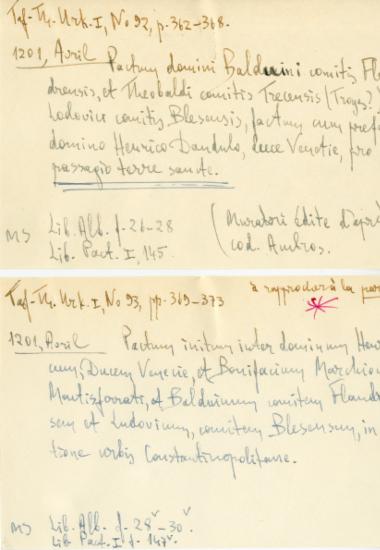 Taf-Th. Urk. I, No 92, p. 362-368.
1201, Avril Pactum domini Balduini comitis Fla
drensis, et Theobaldi comitis Trecensis (Troyes?)
Lodovici comitis Blesensis, factum cum pref
domino Henrico Dandulo, duce Venetie, pro
passagio terre sancte.
MS Lib. Alb. f. 26-28
Lib. Pact. I, 145.
(Muratori édite d'apr
cod. Ambros.
Taf-Th. Urk. I, No 93, pp. 369-373
à rapprocher à la
1201, Avril Pactum initum inter dominum Hen
cum, Ducem Venecie, et Bonifacium Marchio
Montisferrati, et Balduinum comitem Flandr
sem et Ludovicum, comitem Blesensem, in
tione urbis Constantinopolitane.
MS Lib. Alb. f. 28v-30v.
Lib. Pact. I f. 147v.